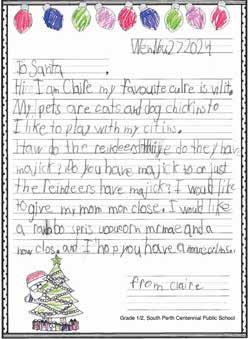 To Santa
Hi I am Claire my favourite culre is vilit.
My pets are cats and dog chickins to
I like to play with my
How do the reindeers do they have
majick? do you have majick to or just
the reindeers have majick? I would like
to give my mom mor close. I would like
a and a
now clos. and I hope you have a
from claire
Grade 1/2, South Perth Centennial Public School